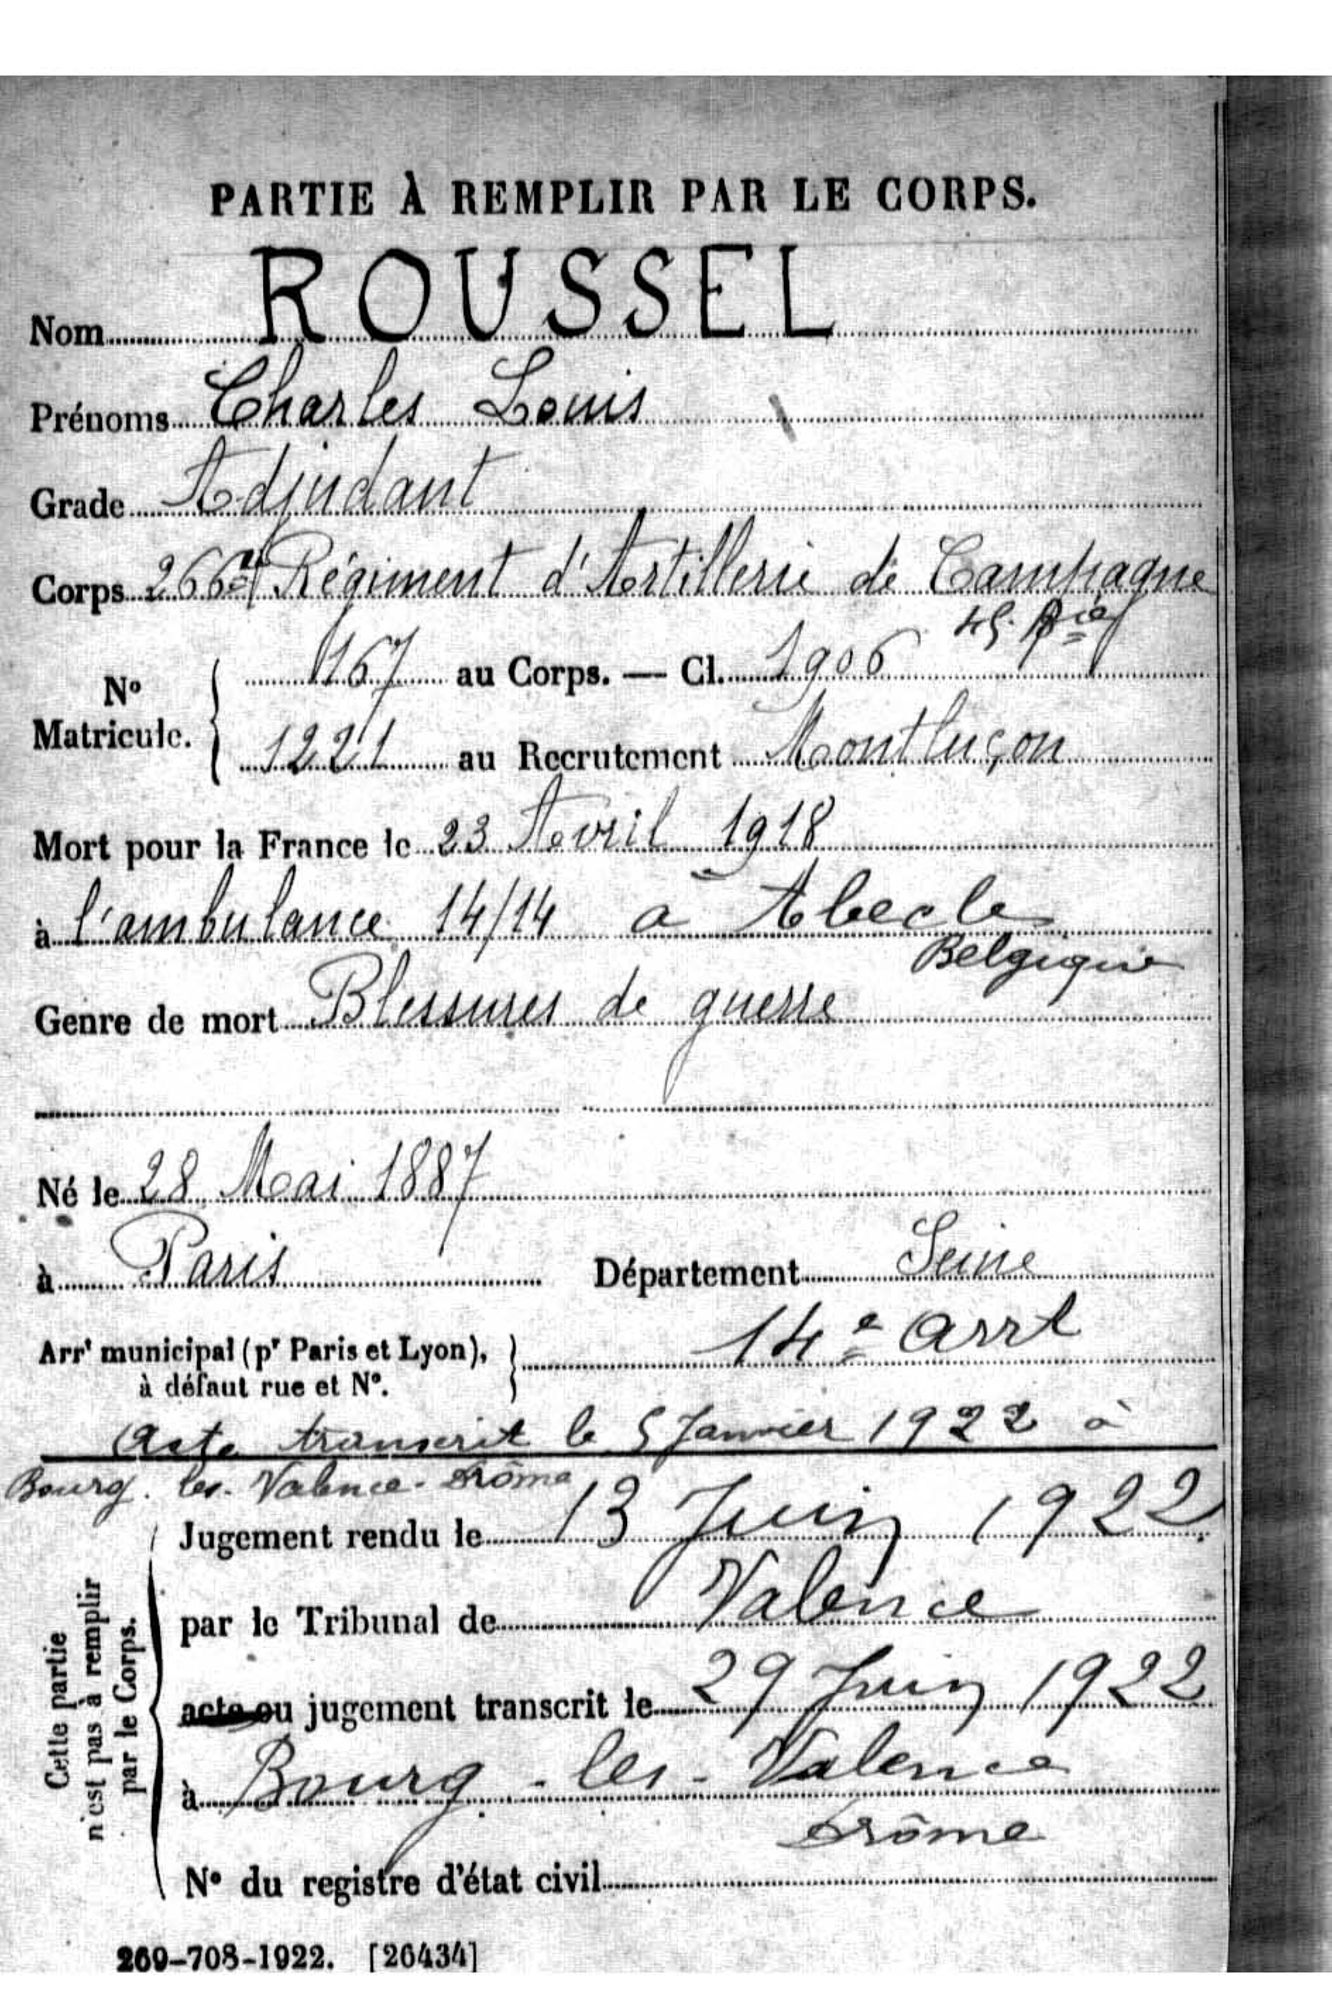 PARTIE À REMPLIR PAR LE CORPS.
Nom ROUSSEL
Prénoms Charles Louis
Grade Adjudant
Corps 266e Régiment d'Artillerie de Campagne
45. Bie
No Matricule. { 1167 au Corps. — Cl. 1906
1221 au Recrutement Montluçon
Mort pour la France le 23 Avril 1918
à l'ambulance 14/14 à Abeele
Belgique
Genre de mort Blessures de guerre
Né le 28 Mai 1887
à Paris Département Seine
Arrt municipal (pr Paris et Lyon), à défaut rue et No. } 14e arrt
Acte transcrit le 5 Janvier 1922 à
Bourg-les-Valence-Drôme
Cette partie n'est pas à remplir par le Corps.
Jugement rendu le 13 Juin 1922.
par le Tribunal de Valence
acte ou jugement transcrit le 29 Juin 1922
à Bourg-les-Valence
Drôme
No du registre d'état civil
269-708-1922. [26434]